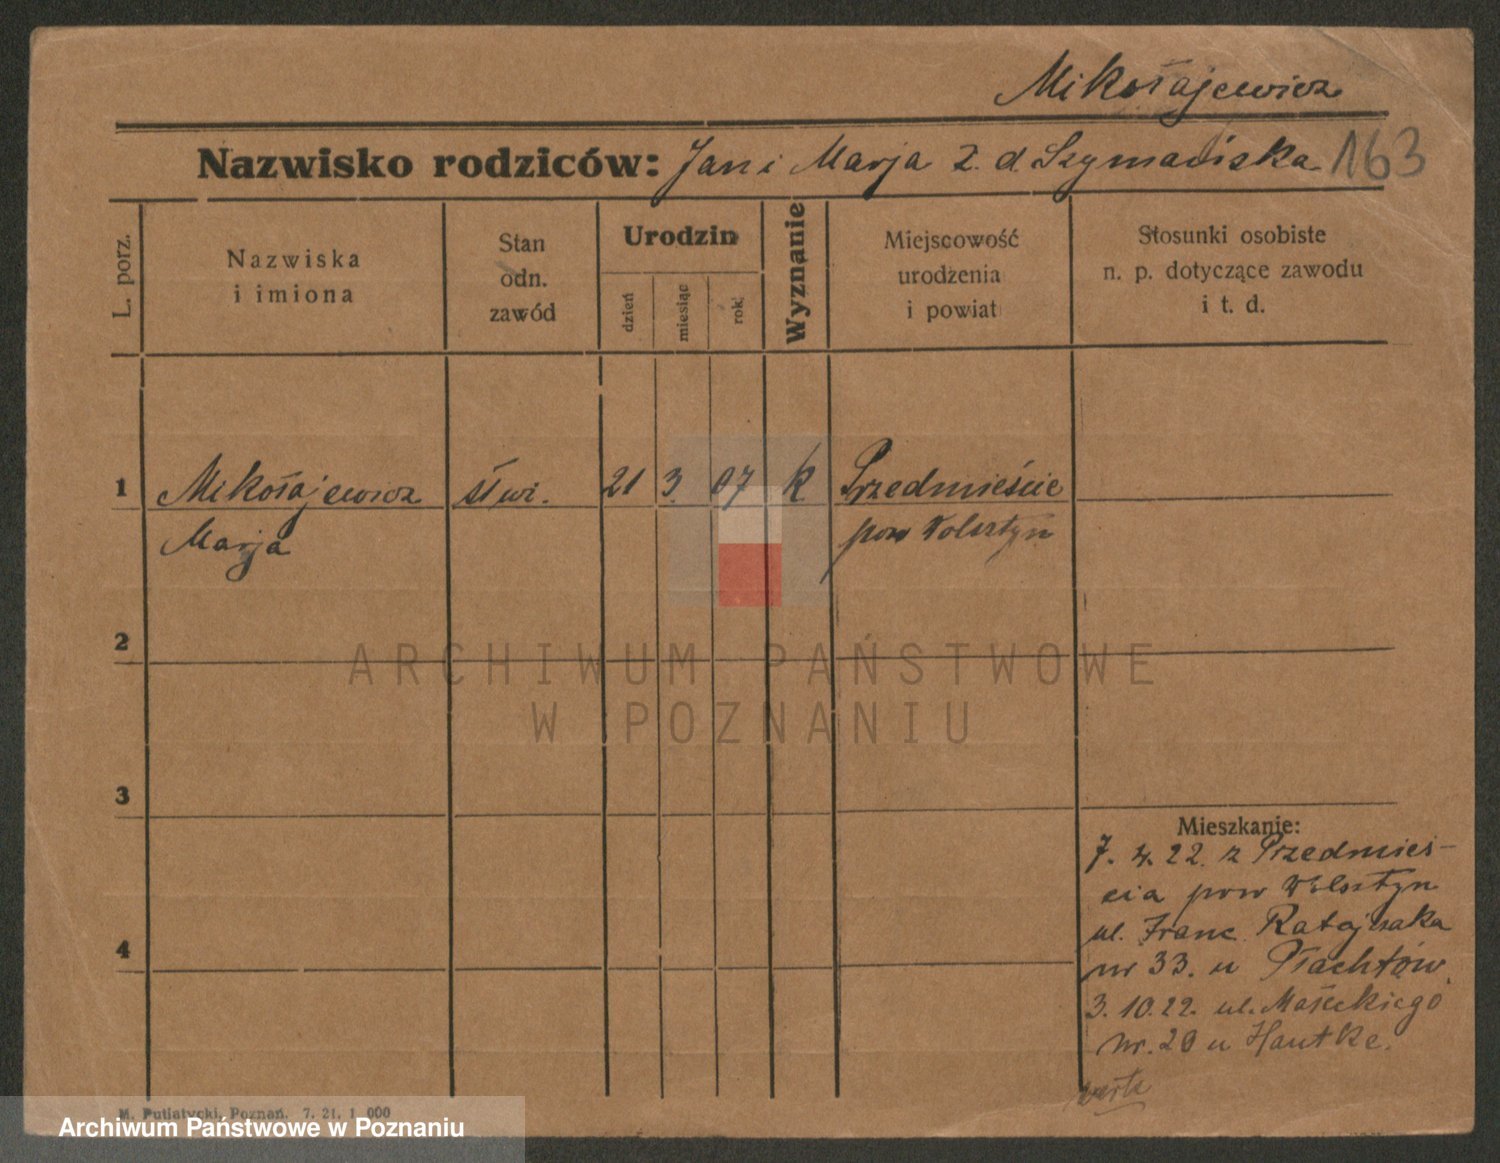 Mikołajewicz
Nazwisko rodziców: Jan i Marja z. d. Szymańska 163
L. porz.
Nazwiska
i imiona
Stan
odn.
zawód
Urodzin
dzień
miesiąc
rok
Wyznanie
Miejscowość
urodzenia
i powiat
Stosunki osobiste
n. p. dotyczące zawodu
i t. d.
1 Mikołajewicz 21 3. 07 k Przedmieście
Marja pow Wolsztyn
2
3
4
Mieszkanie:
7. 4. 22. z Przedmieś-
cia pow Wolsztyn
ul. Franc. Ratajczaka
nr 33. u Płachtów.
3. 10. 22. ul. Małeckiego
nr. 20 u Hautke.
M. Putiatycki, Poznań. 7. 21. 1 000
ARCHIWUM PAŃSTWOWE
W POZNANIU
Archiwum Państwowe w Poznaniu